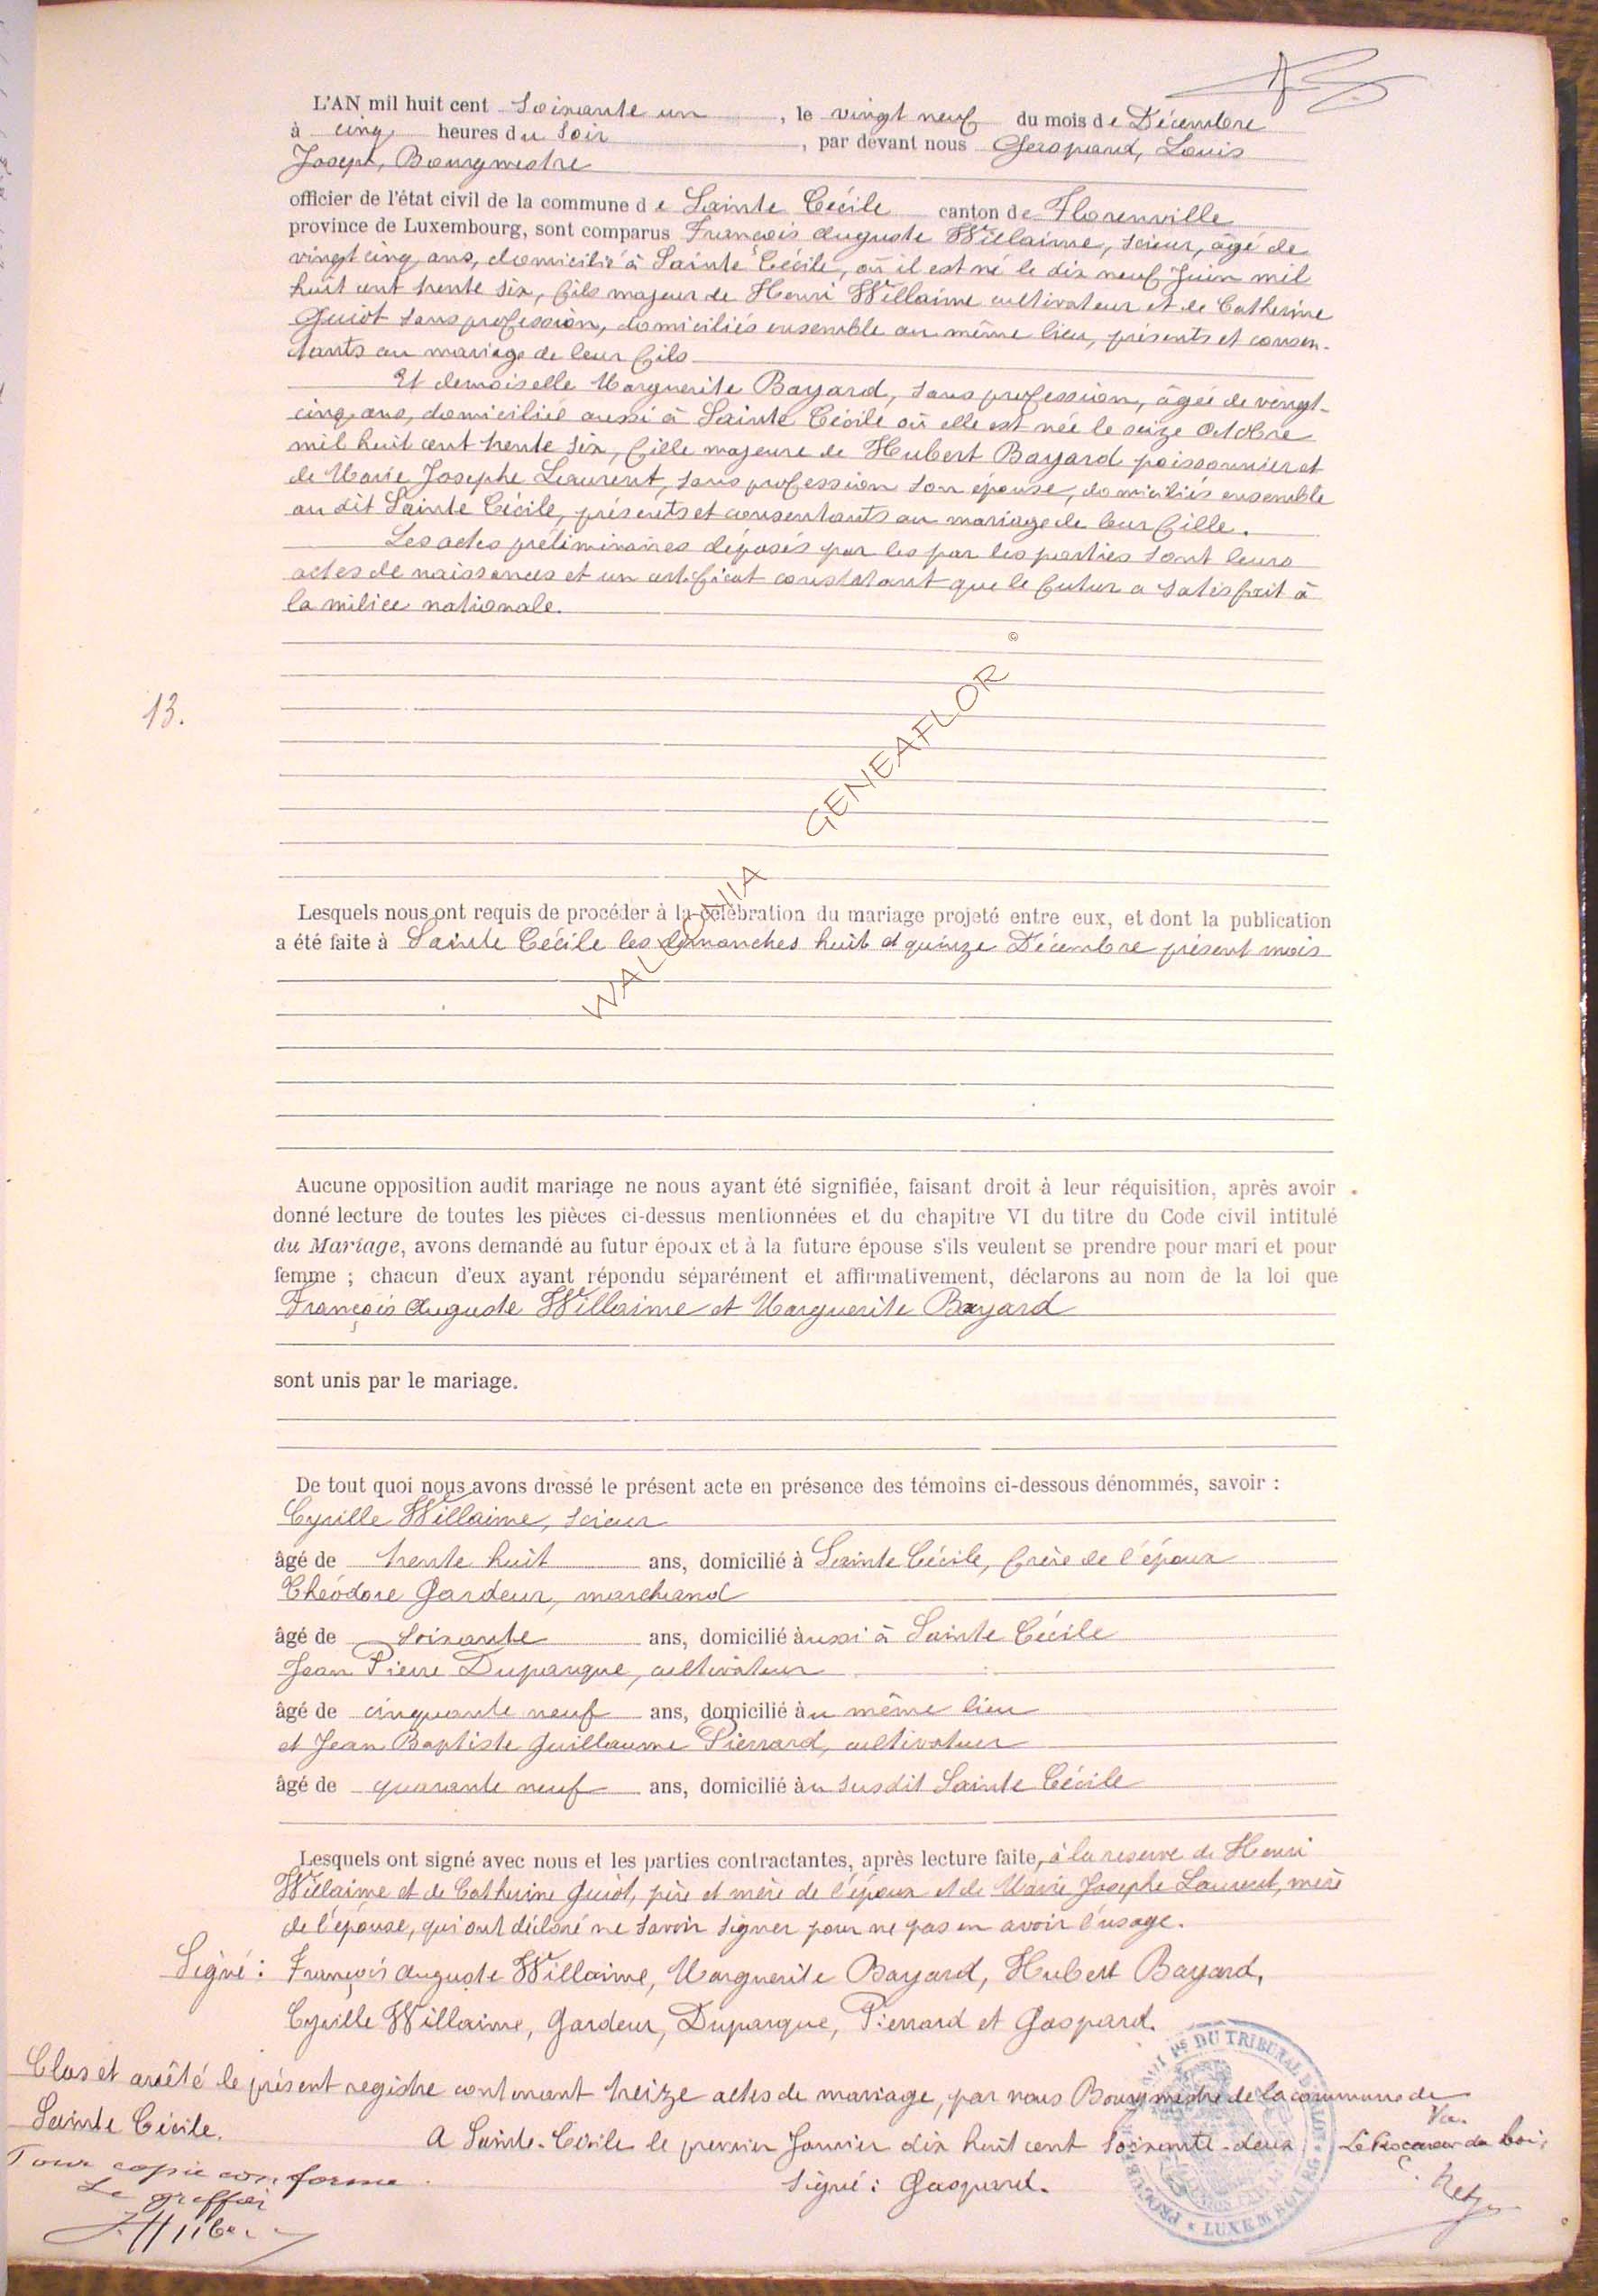 L'AN mil huit cent soixante un, le vingt neuf du mois de Décembre
à cinq heures du soir, par devant nous Gaspard, Louis
Joseph, Bourgmestre
officier de l'état civil de la commune de Sainte Cécile canton de Florenville
province de Luxembourg, sont comparus François Auguste Willaime, scieur, âgé de
vingt cinq ans, domicilié à Sainte Cécile, où il est né le dix neuf Juin mil
huit cent trente six, fils majeur de Henri Willaime cultivateur et de Catherine
Guiot sans profession, domiciliés ensemble au même lieu, présents et consen-
tants au mariage de leur fils
Et demoiselle Marguerite Bayard, sans profession, âgée de vingt-
cinq ans, domiciliée aussi à Sainte Cécile où elle est née le seize Octobre
mil huit cent trente six, fille majeure de Hubert Bayard poissonnier et
de Marie Josephe Laurent, sans profession son épouse, domiciliés ensemble
au dit Sainte Cécile, présents et consentants au mariage de leur fille.
Les actes préliminaires déposés par les par les parties sont leurs
actes de naissances et un certificat constatant que le futur a satisfait à
la milice nationale.
©
13.
WALLONIA GENEAFLOR
Lesquels nous ont requis de procéder à la célébration du mariage projeté entre eux, et dont la publication
a été faite à Sainte Cécile les dimanches huit et quinze Décembre présent mois
Aucune opposition audit mariage ne nous ayant été signifiée, faisant droit à leur réquisition, après avoir
donné lecture de toutes les pièces ci-dessus mentionnées et du chapitre VI du titre du Code civil intitulé
du Mariage, avons demandé au futur époux et à la future épouse s'ils veulent se prendre pour mari et pour
femme ; chacun d'eux ayant répondu séparément et affirmativement, déclarons au nom de la loi que
François Auguste Willaime et Marguerite Bayard
sont unis par le mariage.
De tout quoi nous avons dressé le présent acte en présence des témoins ci-dessous dénommés, savoir :
Cyrille Willaime, scieur
âgé de trente huit ans, domicilié à Sainte Cécile, frère de l'époux
Théodore Gardeur, marchand
âgé de soixante ans, domicilié aussi à Sainte Cécile
Jean Pierre Duparque, cultivateur
âgé de cinquante neuf ans, domicilié au même lieu
et Jean Baptiste Guillaume Pierrard, cultivateur
âgé de quarante neuf ans, domicilié au susdit Sainte Cécile
Lesquels ont signé avec nous et les parties contractantes, après lecture faite, à la reserve de Henri
Willaime et de Catherine Guiot, père et mère de l'époux et de Marie Josephe Laurent, mère
de l'épouse, qui ont déclaré ne savoir signer pour ne pas en avoir l'usage.
Signé : François Auguste Willaime, Marguerite Bayard, Hubert Bayard,
Cyrille Willaime, Gardeur, Duparque, Pierrard et Gaspard.
Clos et arrêté le présent registre contenant treize actes de mariage, par nous Bourgmestre de la commune de
Sainte Cécile. A Sainte-Cécile le premier Janvier dix huit cent soixante-deux
Signé : Gaspard.
Pour copie conforme
Le greffier
Vu.
Le Procureur du Roi,
DU TRIBUNAL
LUXEMBOURG